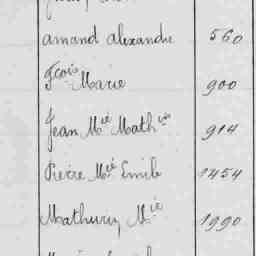 amand alexandre 560
Fcois Marie 900
Jean Mie Math 914
Pierre Mie Emile 1454
Mathurin Mie 1990